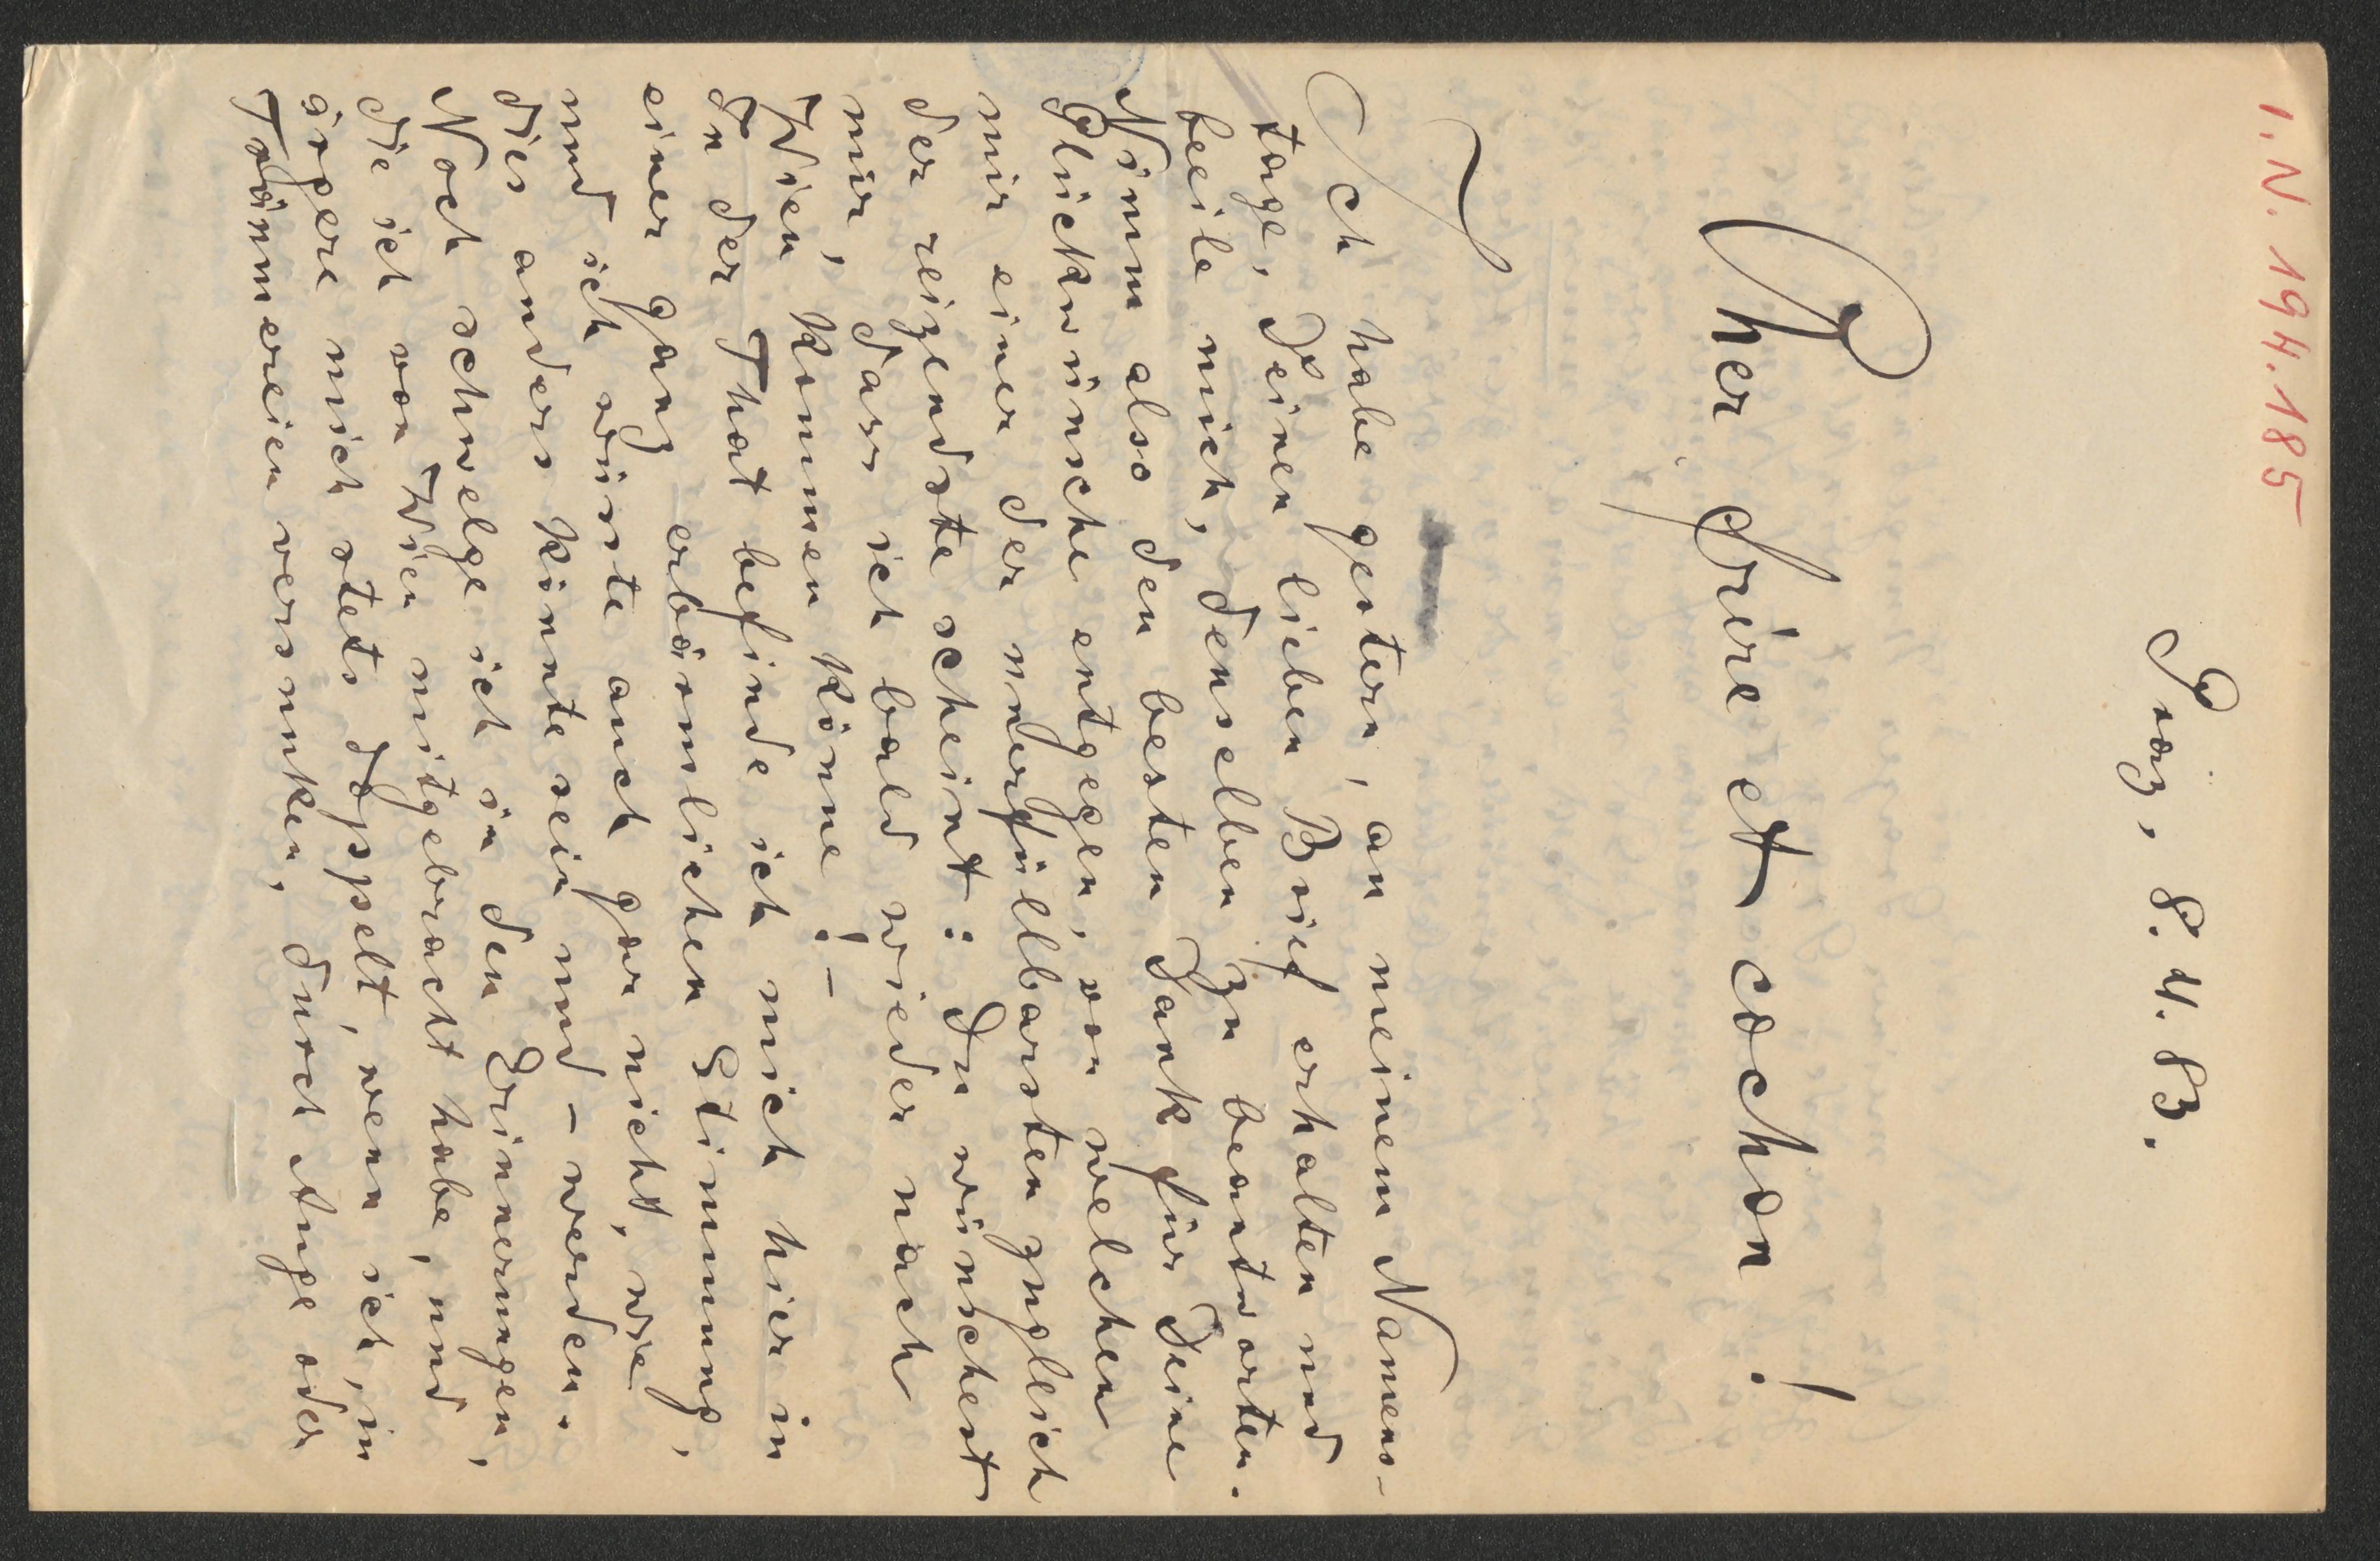 I. N. 194.185
Prag, 8. 4. 83.
Cher frére et cochon!
Ich habe gestern, an meinem Namens-
tage, Deinen lieben Brief erhalten und
beeile mich, denselben zu beantworten.
Nimm also den besten Dank für Deine
Glückwünsche entgegen, von welchen
mir einer der unerfüllbarsten zugleich
der reizendste scheint: Du wünschest
mir, dass ich bald wieder nach
Wien kommen könne! –
In der That befinde ich mich hier in
einer ganz erbärmlichen Stimmung,
und ich wüsste auch gar nicht, wie
dies anders könnte sein und – werden.
Noch schwelge ich in den Erinnerungen,
die ich von Wien mitgebracht habe, und
ärgere mich stets doppelt, wenn ich, in
Träumereien versunken, durch Auge oder